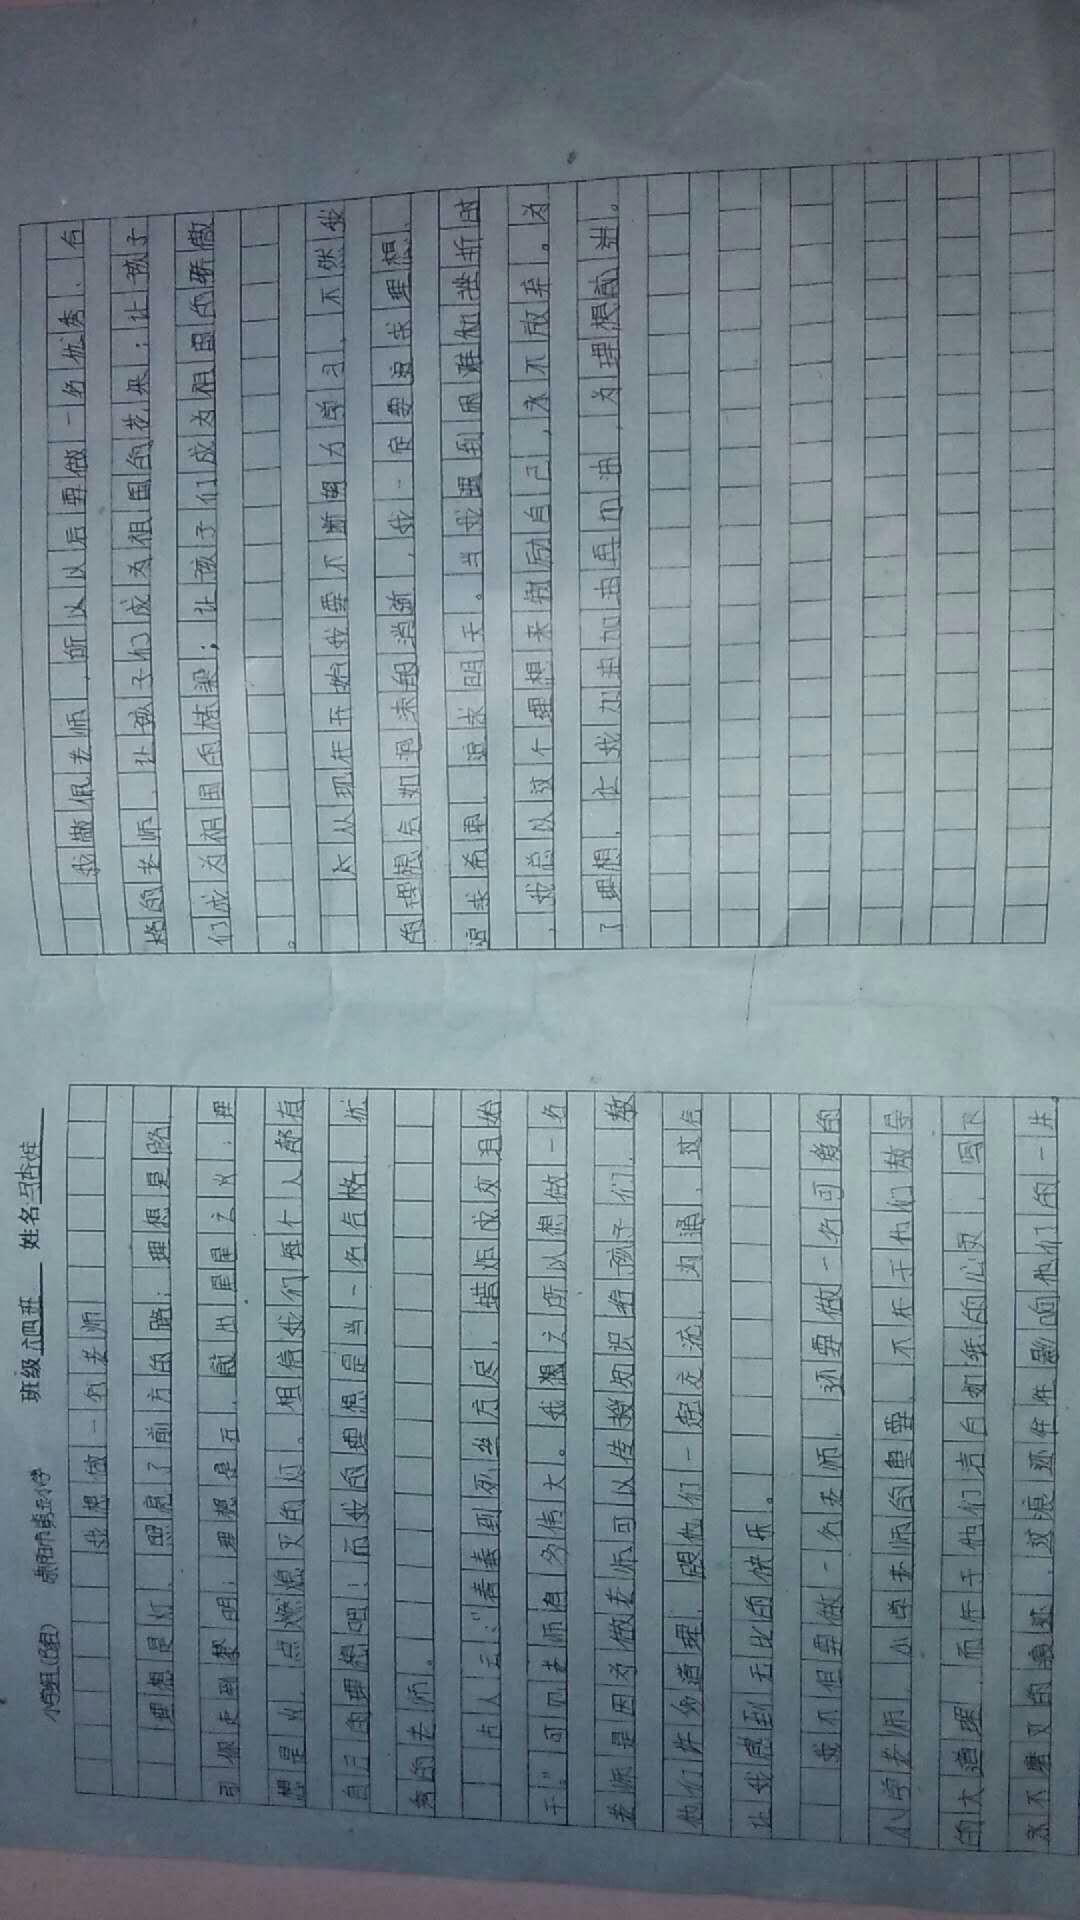 小学组(B组) 耒阳市 小学 班级 六四班 姓名
我想做一名老师
理想是灯,照亮了前方的路;理想是路,
引你走到黎明;理想是石,敲出星星之火;理
想是火,点燃熄灭的灯。相信我们每个人都有
自己的理想吧!而我的理想是当一名合格、优
秀的老师。
古人云:"春蚕到死丝方尽,蜡炬成灰泪始
干。"可见老师有多伟大。我想之所以想做一名
老师是因为做老师可以传授知识给孩子们,教
他们许多道理,跟他们一起交流,沟通,这会
让我感到无比的快乐。
我不但要做一名老师,还要做一名可爱的
小学老师,小学老师的重要,不在于他们教导
的大道理,而在于他们者白如纸的心灵,写下
永不磨灭的痕迹,这痕迹伴伴影响他们的一生。
我敬佩老师,所以以后要做一名优秀、合
格的老师,让孩子们成为祖国的花朵;让孩子
们成为祖国的栋梁;让孩子们成为祖国的骄傲
。
从现在开始我要不断努力学习,不然我
的理想会如泡沫的消逝,我一定要追求理想,
追求希望,追求明天。当我遇到困难和挫折时
,我总以这个理想来激励自己,永不放弃。为
了理想,让我加油加油再加油,为理想奋斗。